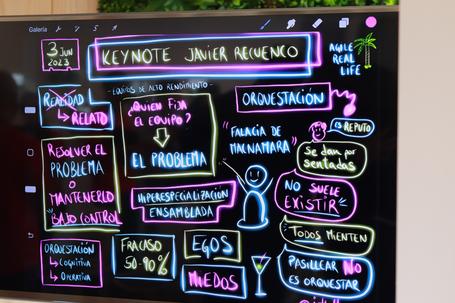 Galería
3 JUN
2023
KEYNOTE JAVIER RECUENCO
AGILE
REAL
LIFE
REALIDAD
↳ RELATO
- EQUIPOS DE ALTO RENDIMIENTO -
¿QUIEN FIJA
EL EQUIPO?
EL PROBLEMA
ORQUESTACIÓN
"FALACIA DE
MACNAMARA"
ES REPUTO
Se dan por
sentadas
RESOLVER EL
PROBLEMA
O
MANTENERLO
BAJO CONTROL
HIPERESPECIALIZACIÓN
ENSAMBLADA
NO SUELE
EXISTIR
TODOS MIENTEN
ORQUESTACIÓN
↳ COGNITIVA
↳ OPERATIVA
FRACASO
50-90%
EGOS
MIEDOS
PASILLEAR NO
ES ORQUESTAR